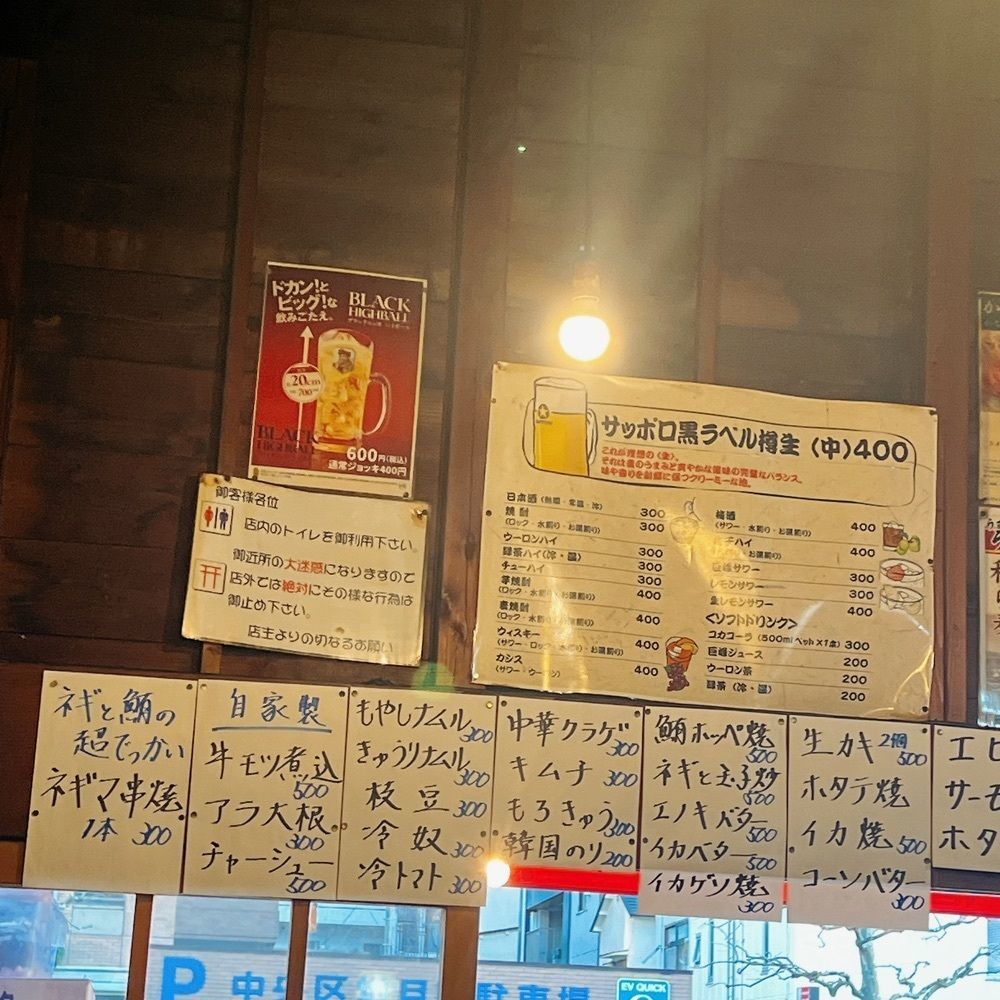 ドカン!と
ビッグ!な
飲みごたえ。
BLACK
HIGHBALL
約20cm
BLACK
HIGHBALL
600円(税込)
通常ジョッキ400円
御客様各位
店内のトイレを御利用下さい。
御近所の大迷惑になりますので
店外では絶対にその様な行為は
御止め下さい。
店主よりの切なるお願い
サッポロ黒ラベル樽生(中)400
これが理想の(生)。
それは麦のうまみと爽やかな後味の完璧なバランス。
味や香りを新鮮に保つクリーミーな泡。
日本酒(熱燗・常温・冷) 300
焼酎 300
(ロック・水割り・お湯割り)
ウーロンハイ
緑茶ハイ(冷・温) 300
チューハイ 300
芋焼酎 400
(ロック・水割り・お湯割り)
麦焼酎 400
(ロック・水割り・お湯割り)
ウィスキー 400
(サワー・ロック・水割り・お湯割り)
カシス 400
(サワー・ウーロン)
梅酒 400
(サワー・水割り・お湯割り)
ハイ 400
お湯割り)
巨峰サワー 300
レモンサワー 300
生レモンサワー 400
<ソフトドリンク>
コカコーラ(500mlペット×1本) 300
巨峰ジュース 200
ウーロン茶 200
緑茶(冷・温) 200
ネギと鮪の
超でっかい
ネギマ串焼
1本 300
自家製
牛モツ煮込 500
アラ大根 300
チャーシュー 500
もやしナムル 300
きゅうりナムル 300
枝豆 300
冷奴 300
冷トマト 300
中華クラゲ 300
キムチ 300
もろきゅう 300
韓国のり 200
鮪ホッペ焼 500
ネギと玉子炒 500
エノキバター 500
イカバター 500
イカゲソ焼 300
生カキ 2個 500
ホタテ焼
イカ焼 500
コーンバター 300
エビ
サーモ
ホタ
P 中央区
駐車場
EV QUICK